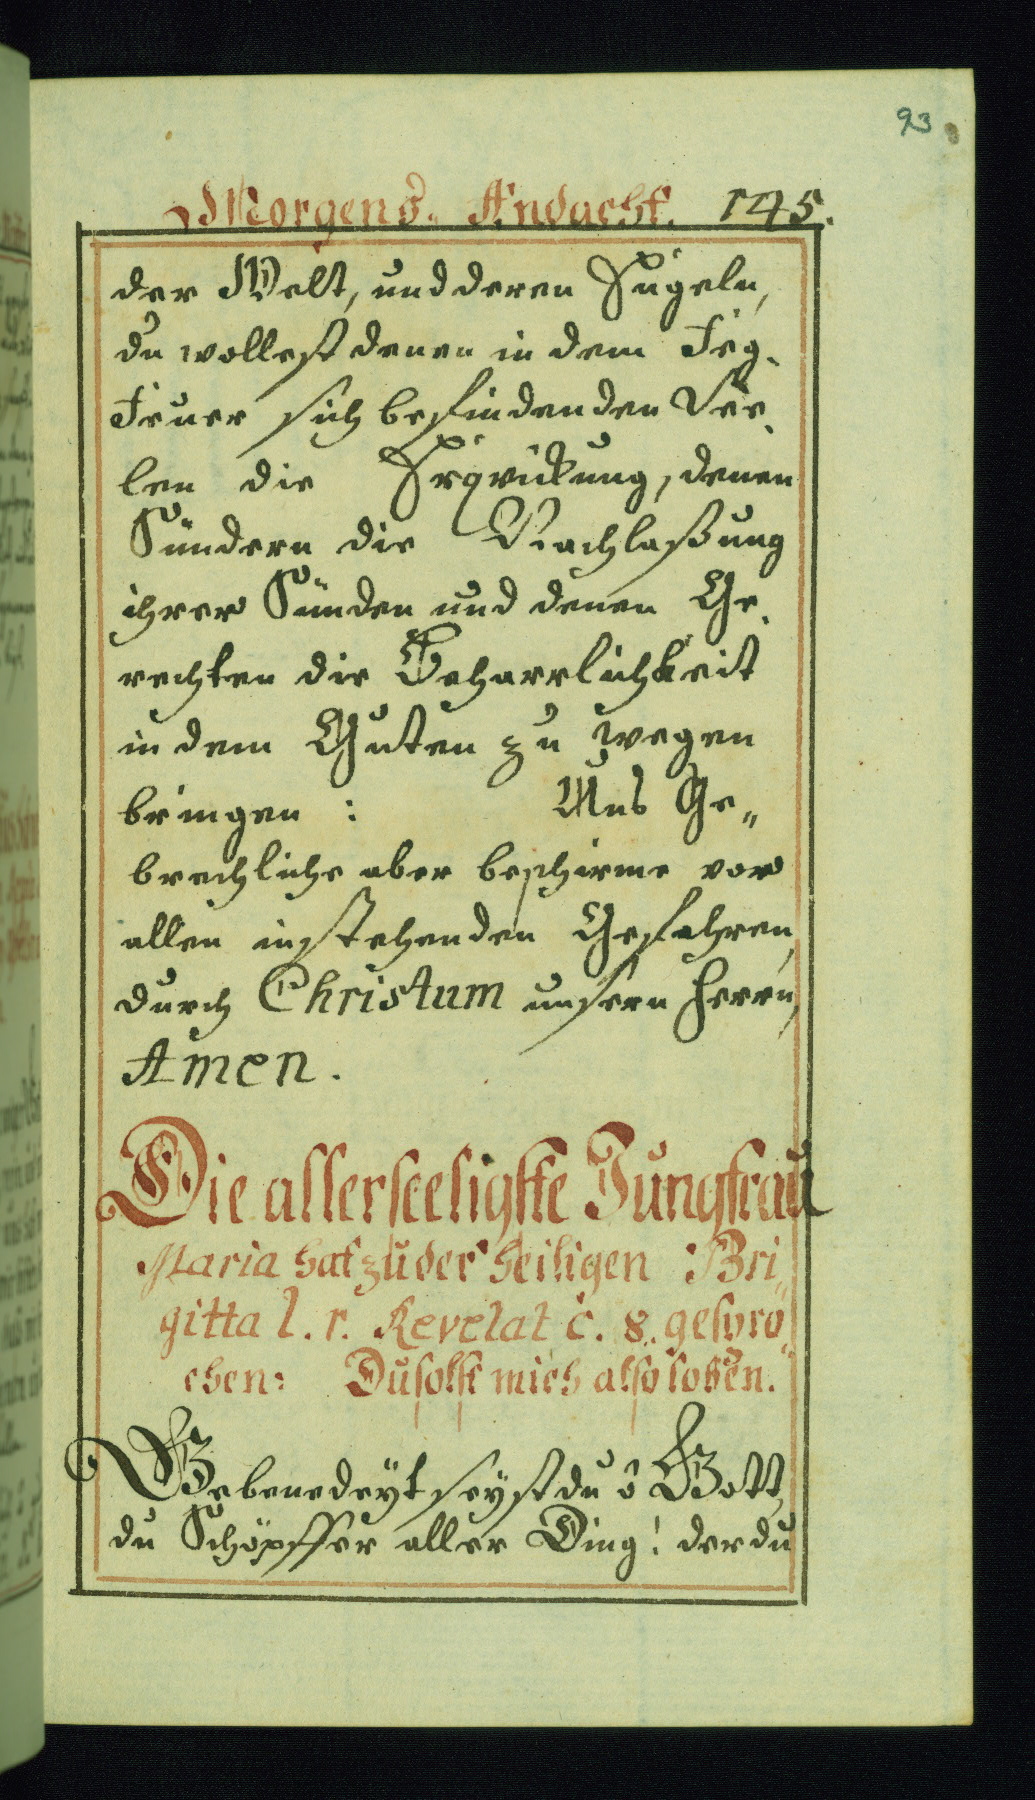 93
Morgens Andacht. 145.
der Welt, und deren Engeln,
du wollest denen in dem Feg-
Feuer sich befindenden See-
len die Erqvickung, denen
Sündern die Nachlaßung
ihrer Sünden und denen Ge-
rechten die Beharrlichkeit
in dem Guten zu wegen
bringen: Uns Ge„
brechliche aber beschirme vor
allen instehenden Gefahren,
durch Christum unsern Herrn,
Amen.
Die allerseeligste Jungfrau
Maria hat zu der heiligen Bri„
gitta l. r. Revelat c. 8. gespro„
chen: Du solst mich also loben.
Gebenedeyt seyst du ô Gott,
du Schöpffer aller Ding! der du